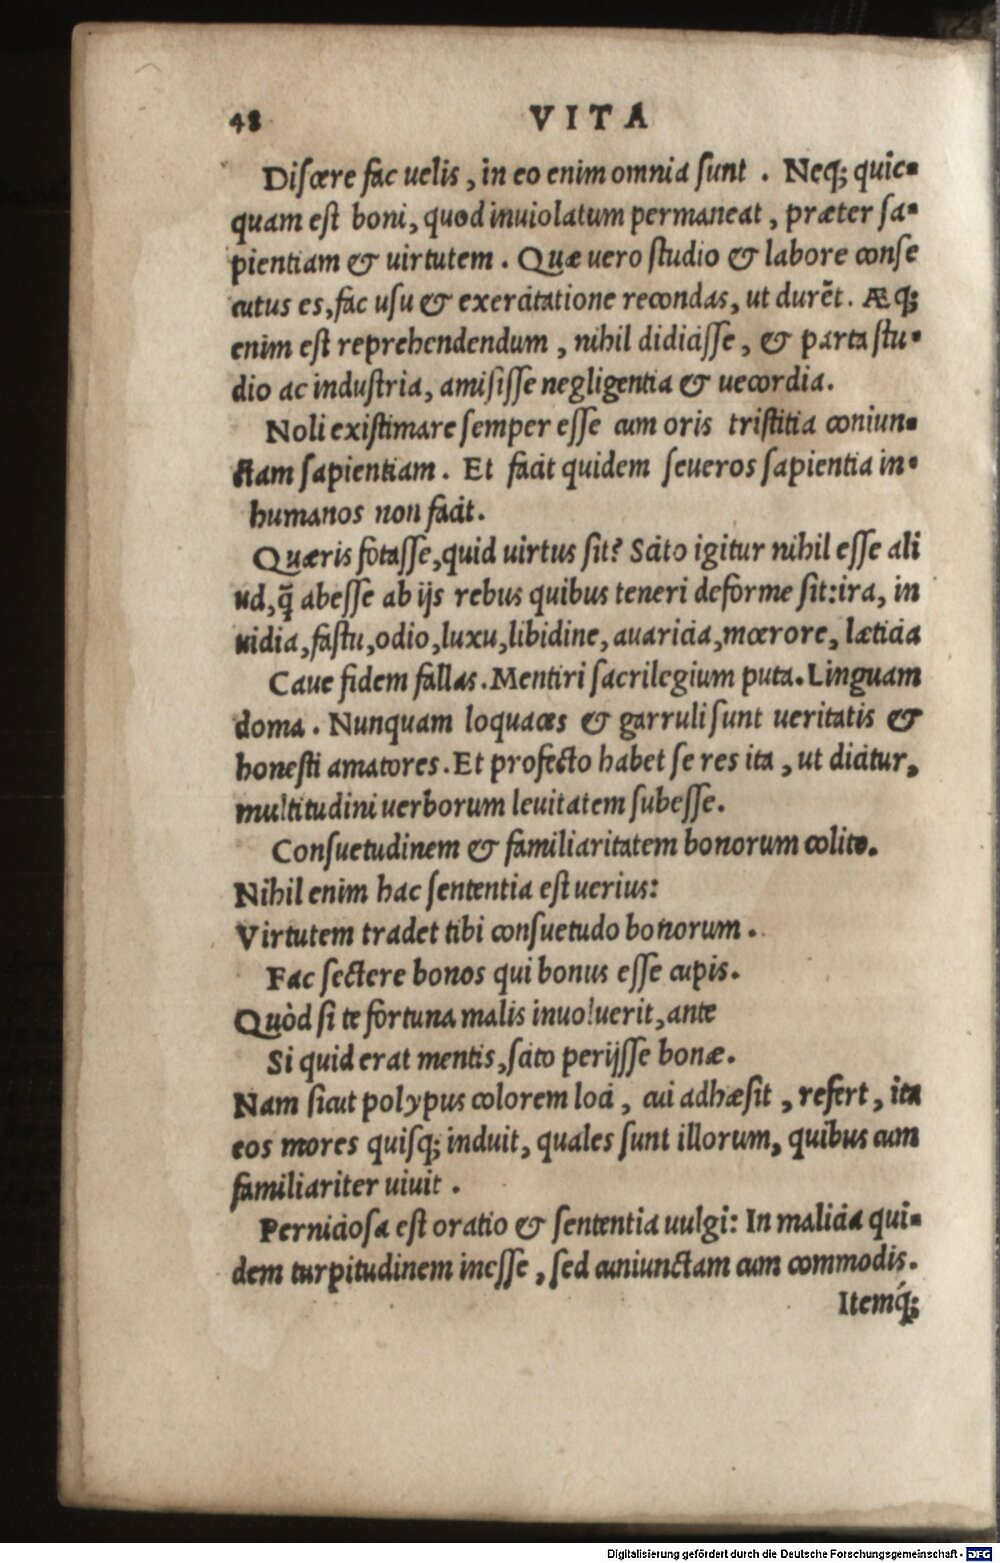 48 VITA
Discere fac uelis, in eo enim omnia sunt. Neq; quic-
quam est boni, quod inuiolatum permaneat, præter sa-
pientiam & uirtutem. Quæ uero studio & labore conse
cutus es, fac usu & exercitatione recondas, ut durēt. Æq;
enim est reprehendendum, nihil didicisse, & parta stu-
dio ac industria, amisisse negligentia & uecordia.
Noli existimare semper esse cum oris tristitia coniun-
ctam sapientiam. Et facit quidem seueros sapientia in-
humanos non facit.
Quæris fotasse, quid uirtus sit? Scito igitur nihil esse ali
ud, q̃ abesse ab ijs rebus quibus teneri deforme sit: ira, in
uidia, fastu, odio, luxu, libidine, auaricia, mœrore, læticia
Caue fidem fallas. Mentiri sacrilegium puta. Linguam
doma. Nunquam loquaces & garruli sunt ueritatis &
honesti amatores. Et profecto habet se res ita, ut dicitur,
multitudini uerborum leuitatem subesse.
Consuetudinem & familiaritatem bonorum colito.
Nihil enim hac sententia est uerius:
Virtutem tradet tibi consuetudo bonorum.
Fac sectere bonos qui bonus esse cupis.
Quòd si te fortuna malis inuoluerit, ante
Si quid erat mentis, scito perijsse bonæ.
Nam sicut polypus colorem loci, cui adhæsit, refert, ita
eos mores quisq; induit, quales sunt illorum, quibus cum
familiariter uiuit.
Perniciosa est oratio & sententia uulgi: In malicia qui-
dem turpitudinem inesse, sed cuniunctam cum commodis.
Itemq́;
Digitalisierung gefördert durch die Deutsche Forschungsgemeinschaft - DFG